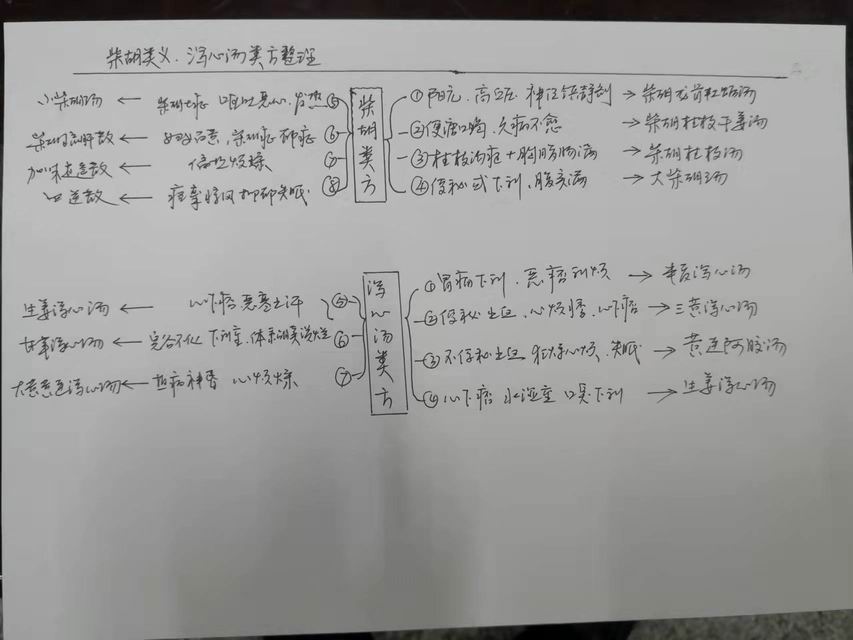 柴胡类义、泻心汤类方整理
柴胡类方
①阳亢、高血压 神经镇静剂 → 柴胡龙骨牡蛎汤
②便溏口渴、久病不愈 → 柴胡桂枝干姜汤
③桂枝汤症+胸胁胀满 → 柴胡桂枝汤
④便秘或下利、腹实满 → 大柴胡汤
小柴胡汤 ← 柴胡七症 呕吐恶心、发热 ⑤
柴胡疏肝散 ← 柴胡症 抑症 ⑥
加味逍遥散 ← 烦燥 ⑦
四逆散 ← 抑郁失眠 ⑧
泻心汤类方
①胃病下利、恶痞利烦 → 半夏泻心汤
②便秘 吐血、心烦悸、心下痞 → 三黄泻心汤
③不便秘 吐血 心烦、失眠 → 黄连阿胶汤
④心下痞 水湿重 口臭下利 → 生姜泻心汤
生姜泻心汤 ← 心下痞 恶寒出汗 ⑤
甘草泻心汤 ← 完谷不化 下利重、 ⑥
黄连泻心汤 ← 热病神昏 心烦燥 ⑦